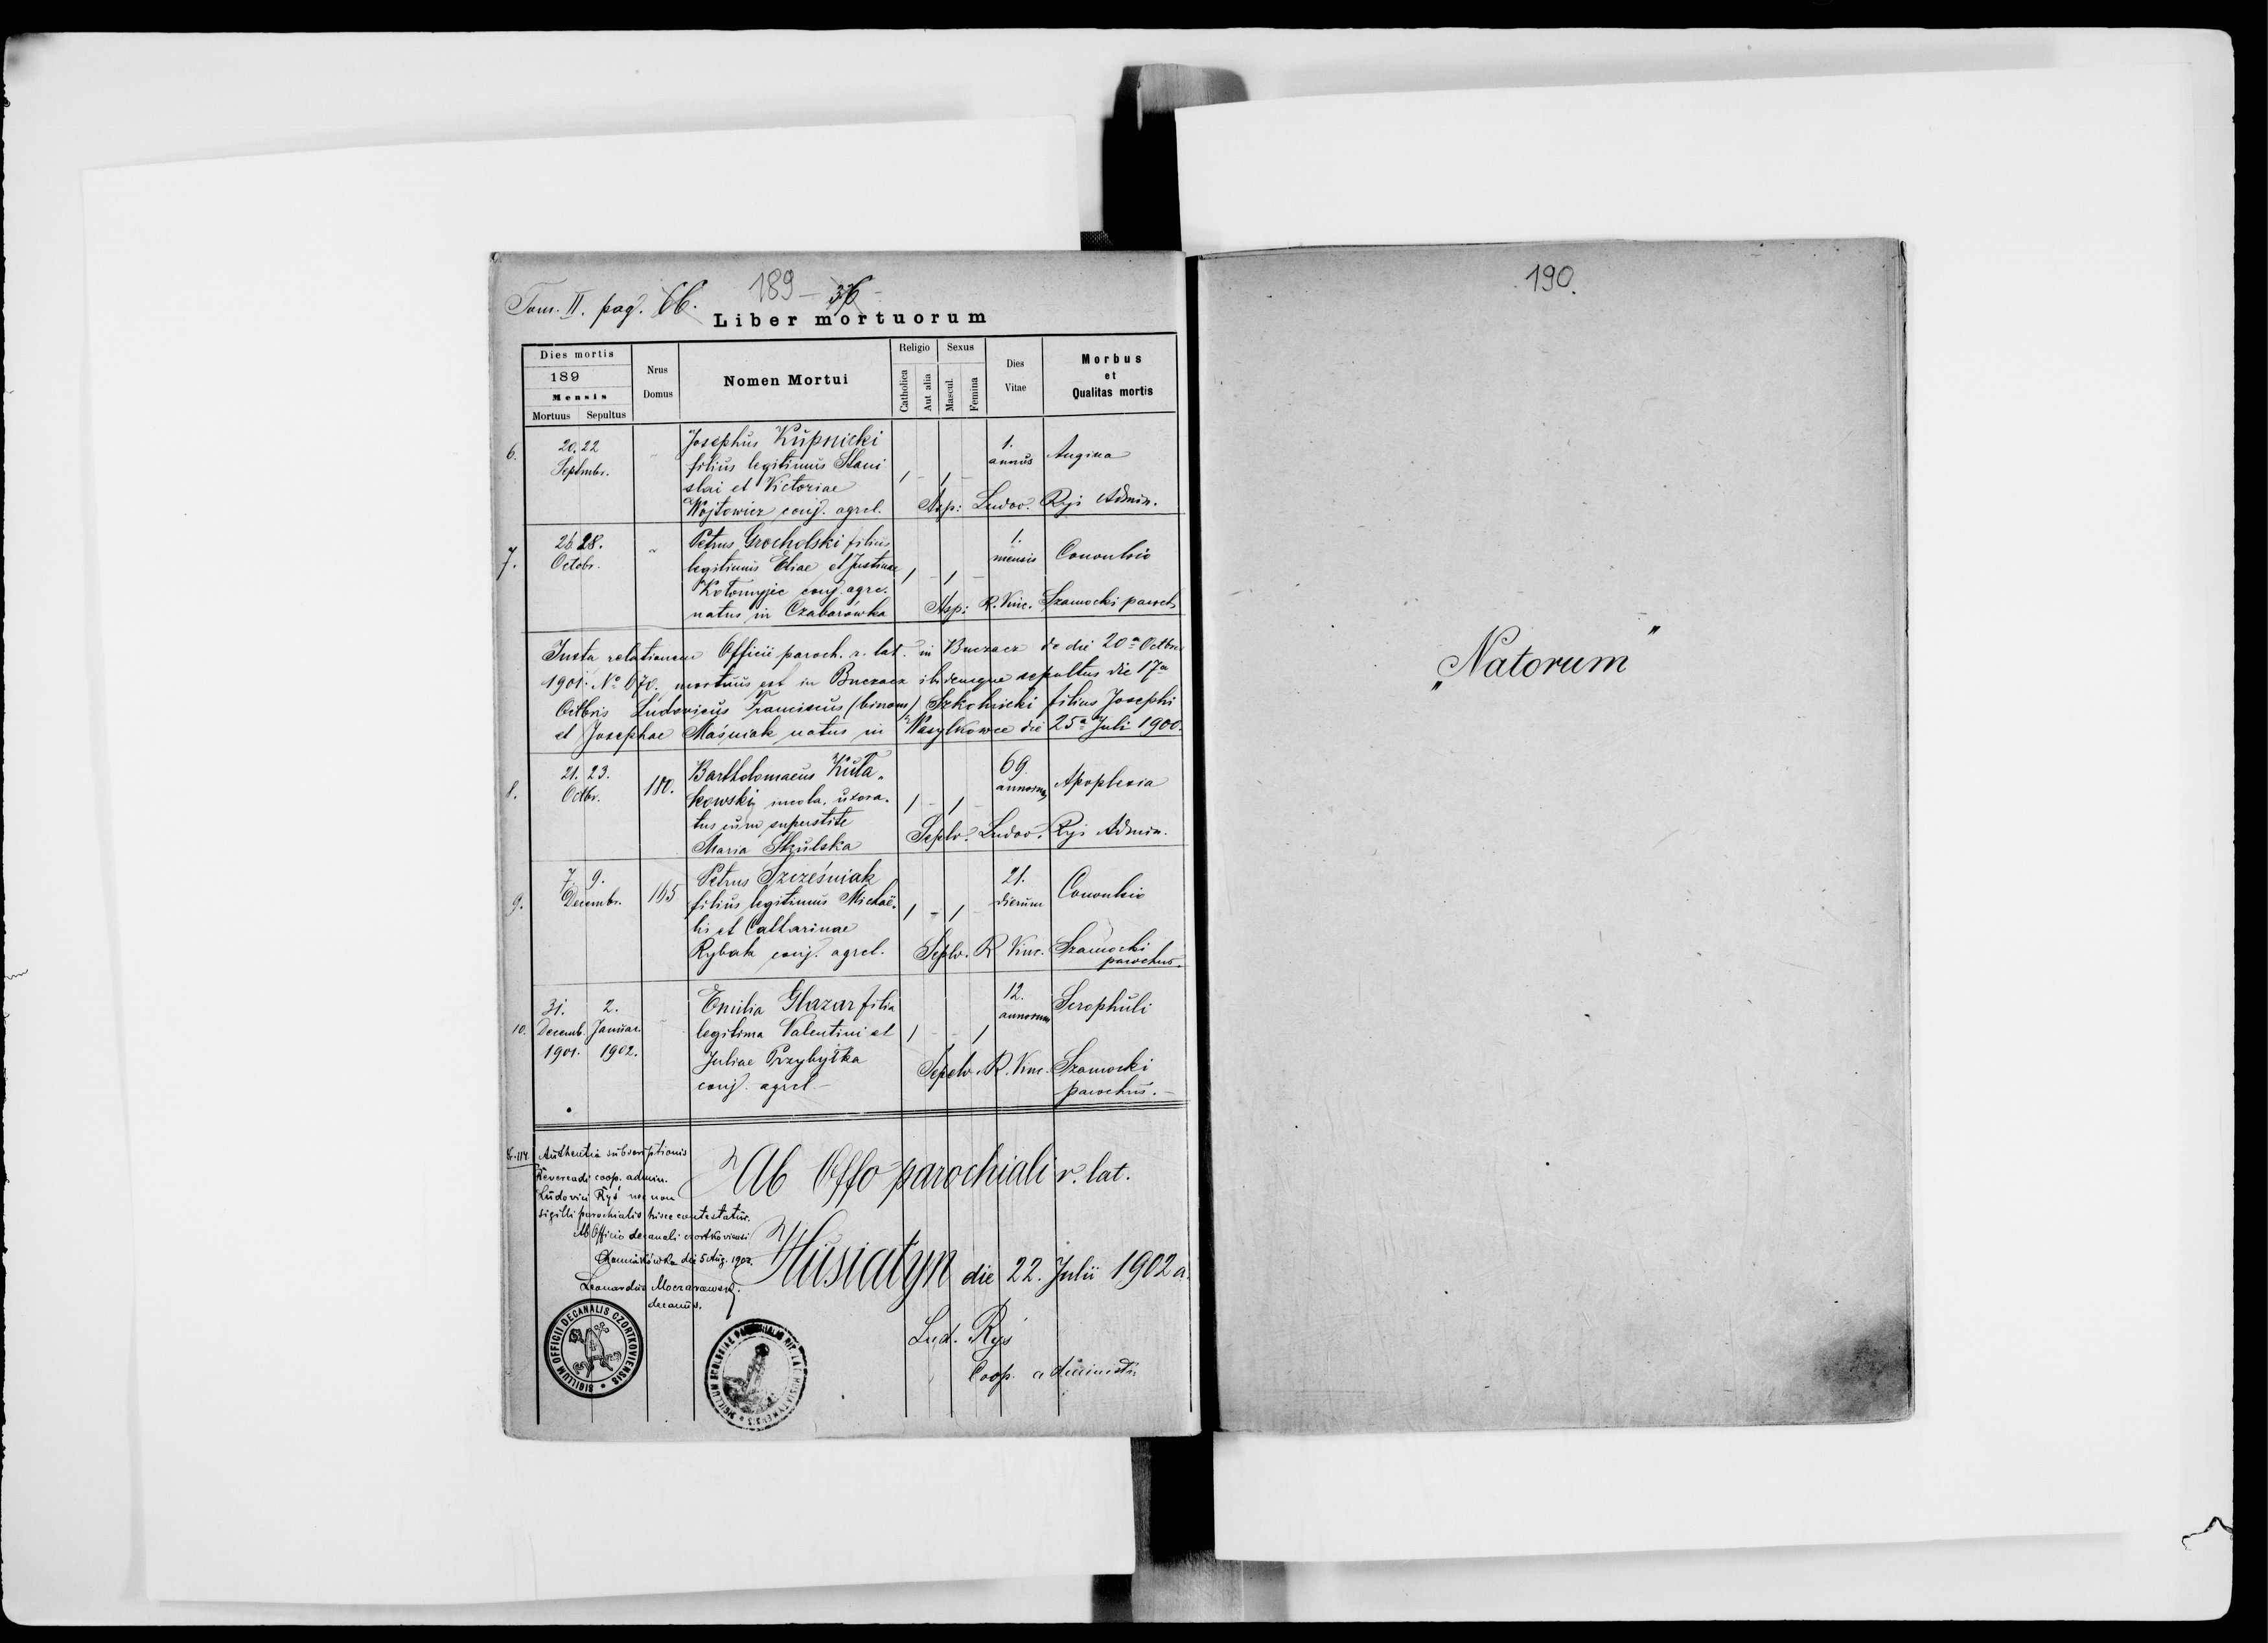 Tom. II. pag. 66.
189 - 36 -
Liber mortuorum
Dies mortis
189
Mensis
Mortuus Sepultus
Nrus
Domus
Nomen Mortui
Religio
Catholica
Aut alia
Sexus
Mascul.
Femina
Dies
Vitae
Morbus
et
Qualitas mortis
6.
20. 22
Septmbr.
Josephus Kupnicki
filius legitimus Stani
slai et Victoriae
Wojtowicz conj. agrcl.
1 - 1 -
1.
annus
Angina
Asp: Ludov. Ryś Admin.
7.
26 28.
Octobr.
Petrus Grocholski filius
legitimus Eliae et Justinae
Kołomyjec conj. agrc.
natus in Czabarówka
1 - 1 -
1.
mensis
Convulsio
Asp: R. Vinc. Szamocki paroch
Juxta relationem Officii paroch. r. lat. in Buczacz de die 20a Octbris
1901. No 670. mortuus est in Buczacz ibidemque sepultus die 17a
Octbris Ludovicus Franciscus (binom) Szkolnicki filius Josephi
et Josephae Maśniak natus in Wasylkowce die 25a Juli 1900.
8.
21. 23.
Octbr.
180.
Bartholomaeus Kuła-
kowski, incola, uxora-
tus cum superstite
Maria Skulska
1 - 1 -
69
annorum
Apoplexia
Seplv. Ludov. Ryś Admin.
9.
7. 9.
Decembr.
165
Petrus Szcześniak
filius legitimus Michaë-
lis et Catharinae
Rybak conj. agrcl.
1 - 1 -
21.
dierum
Convulsio
Seplv. R. Vinc. Szamocki
parochus.
10.
31. 2.
Decemb. Januar.
1901. 1902.
Emilia Głazar filia
legitima Valentini et
Juliae Przybyłka
conj. agrcl. -
1 - - 1
12.
annorum
Scrophuli
Sepelv. R. Vinc. Szamocki
parochus. -
Nr. 114.
Authentia subscriptionis
Reverendi coop. admin.
Ludovici Ryś nec non
sigilli parochialis hisce contestatur.
Ab Officio decanali czortkoviensi
die 5 Aug. 1902.
Leonardus
decanus.
SIGILLUM OFFICII DECANALIS CZORTKOVIENSIS
Ab Offo parochiali r. lat.
Husiatyn die 22. Julii 1902 a.
Lud. Ryś
Coop. administr.
SIGILLUM ECCLESIAE PAROCHIALIS RIT. LAT. HUSIATYNENSIS
190.
„Natorum"